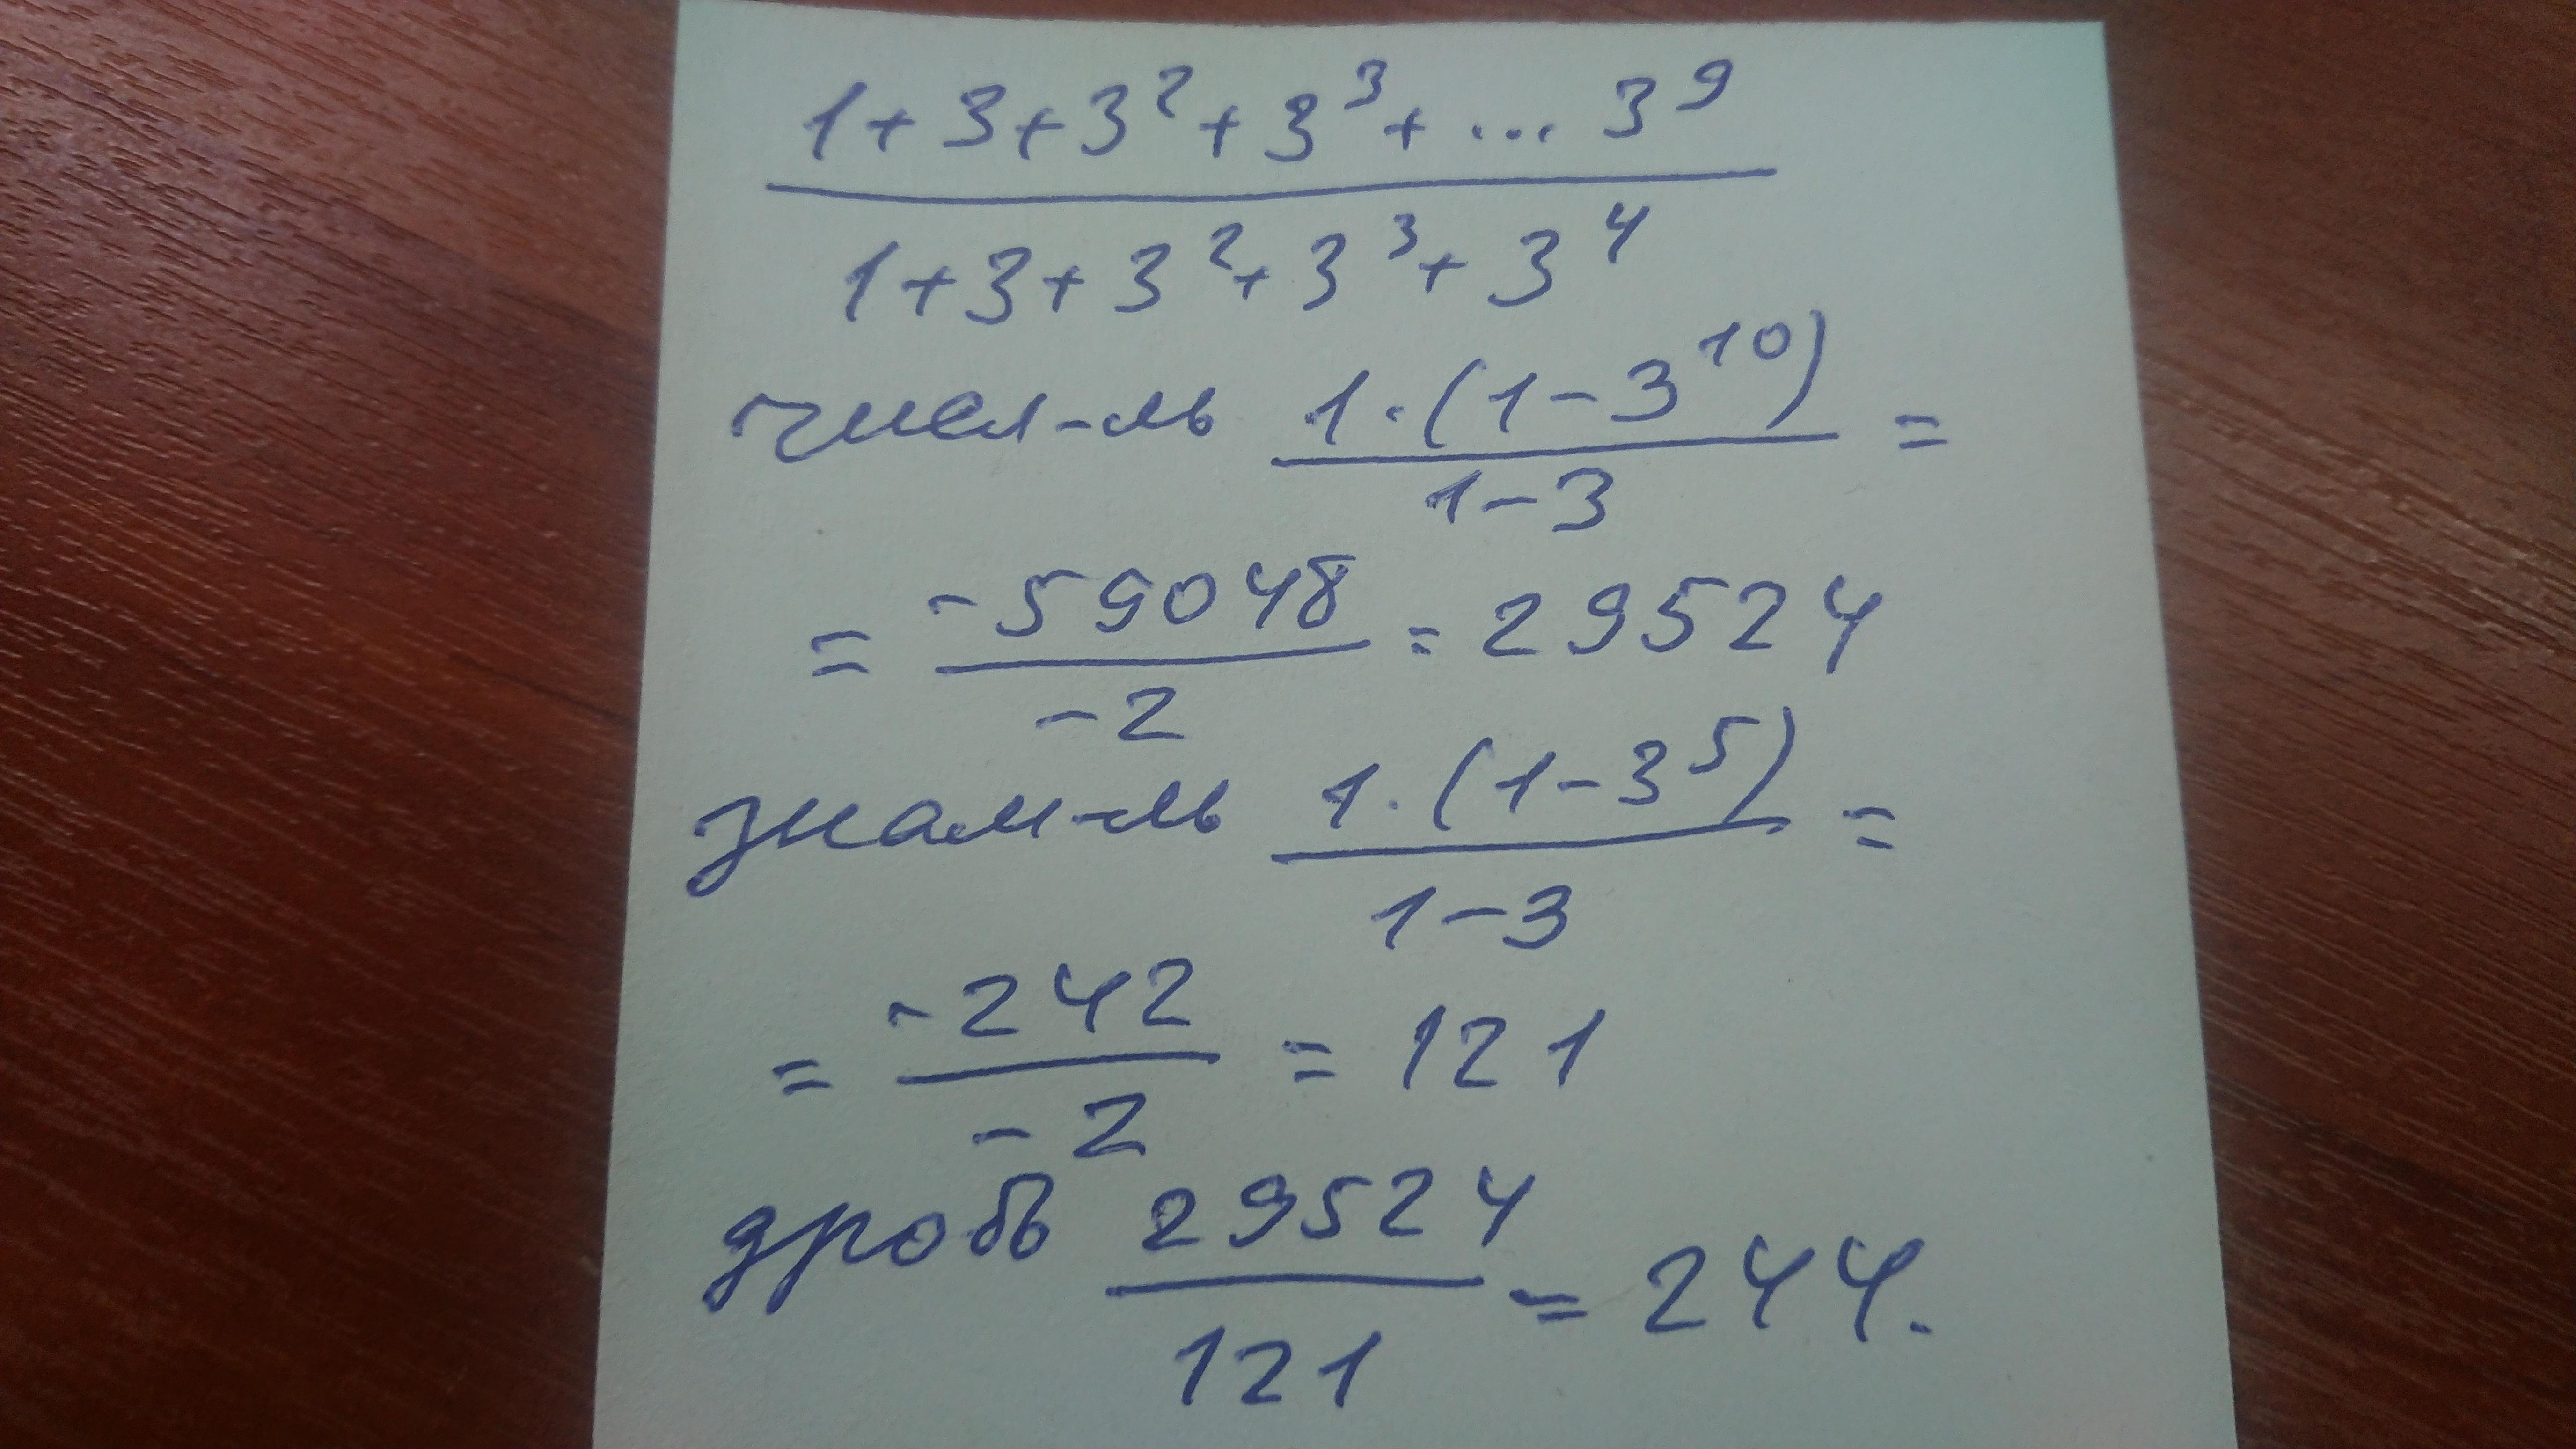 1+3+3²+3³+...3⁹
1+3+3²+3³+3⁴
числ-ль 1·(1-3¹⁰) =
1-3
= -59048 = 29524
-2
знам-ль 1·(1-3⁵) =
1-3
= -242 = 121
-2
дробь 29524 = 244.
121